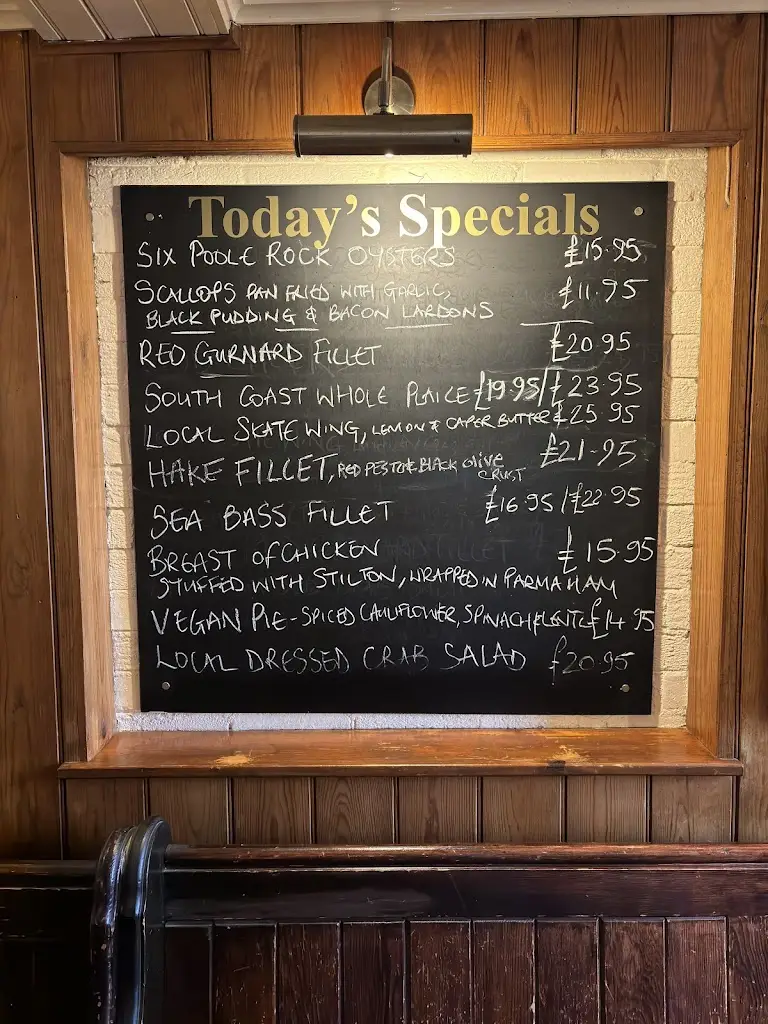 Today's Specials
SIX POOLE ROCK OYSTERS £15.95
SCALLOPS PAN FRIED WITH GARLIC, £11.95
BLACK PUDDING & BACON LARDONS
RED GURNARD FILLET £20.95
SOUTH COAST WHOLE PLAICE £19.95/£23.95
LOCAL SKATE WING, LEMON & CAPER BUTTER £25.95
HAKE FILLET, RED PESTO & BLACK olive £21.95
CRUST
SEA BASS FILLET £16.95/£22.95
BREAST OF CHICKEN £15.95
STUFFED WITH STILTON, WRAPPED IN PARMA HAM
VEGAN PIE - SPICED CAULIFLOWER, SPINACH & £14.95
LOCAL DRESSED CRAB SALAD £20.95